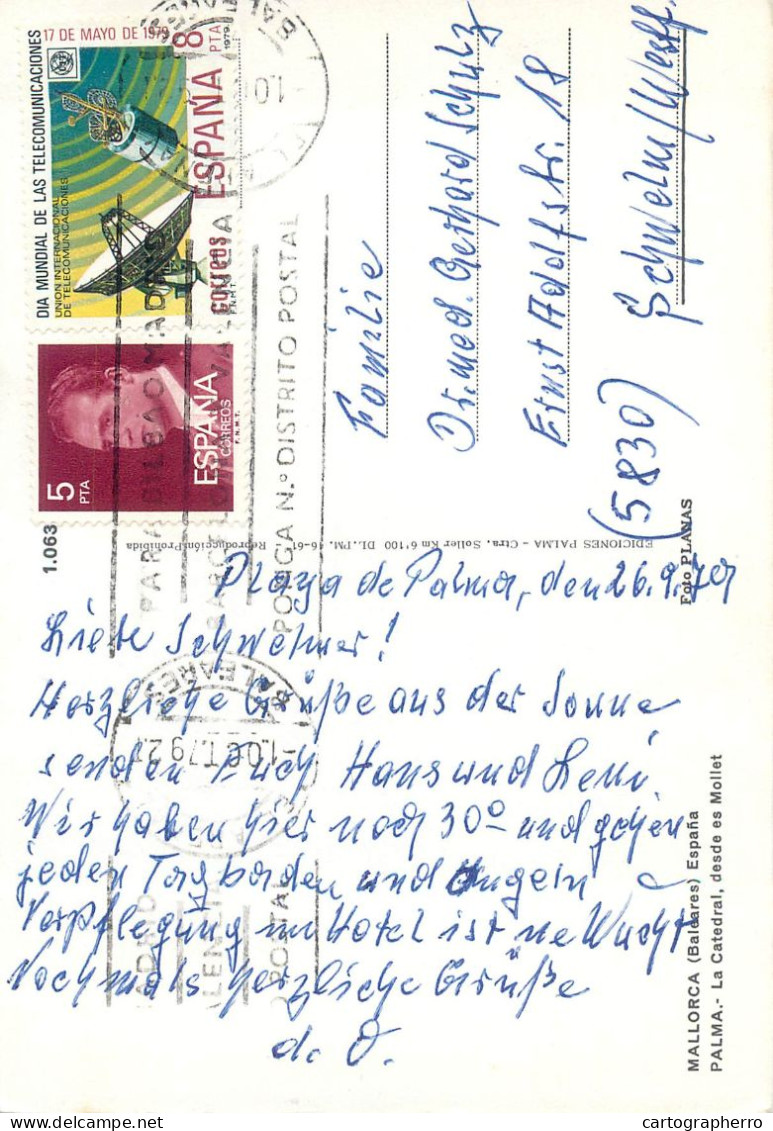 17 DE MAYO DE 1979
DIA MUNDIAL DE LAS TELECOMUNICACIONES
UNION INTERNACIONAL
DE TELECOMUNICACIONES
8 PTA
1979
ESPAÑA
correos
F.N.M.T.
5 PTA
ESPAÑA
CORREOS
F.N.M.T.
BALEARES
PARA BILBAO MADRID
BARCELONA VALENCIA
PONGA N.º DISTRITO POSTAL
BALEARES
-1.OCT.79.2
ADRID
LENCIA
POSTAL
Familie
Dr. med. Gerhard Schulz
Ernst Adolfstr. 18
(5830) Schwelm/Westf.
1.063
EDICIONES PALMA - Ctra. Soller Km 6'100 DL. PM. 46-61 - Reproducción Prohibida
Foto PLANAS
Playa de Palma, den 26.9.79
Liebe Schwelmer!
Herzliche Grüße aus der Sonne
senden Euch Hans und Leni.
Wir haben hier noch 30° und gehen
jeden Tag baden und
Verpflegung im Hotel ist ne Wucht
Nochmals herzliche Grüße
d. O.
MALLORCA (Baleares) España
PALMA.- La Catedral, desde es Mollet
cartographerro